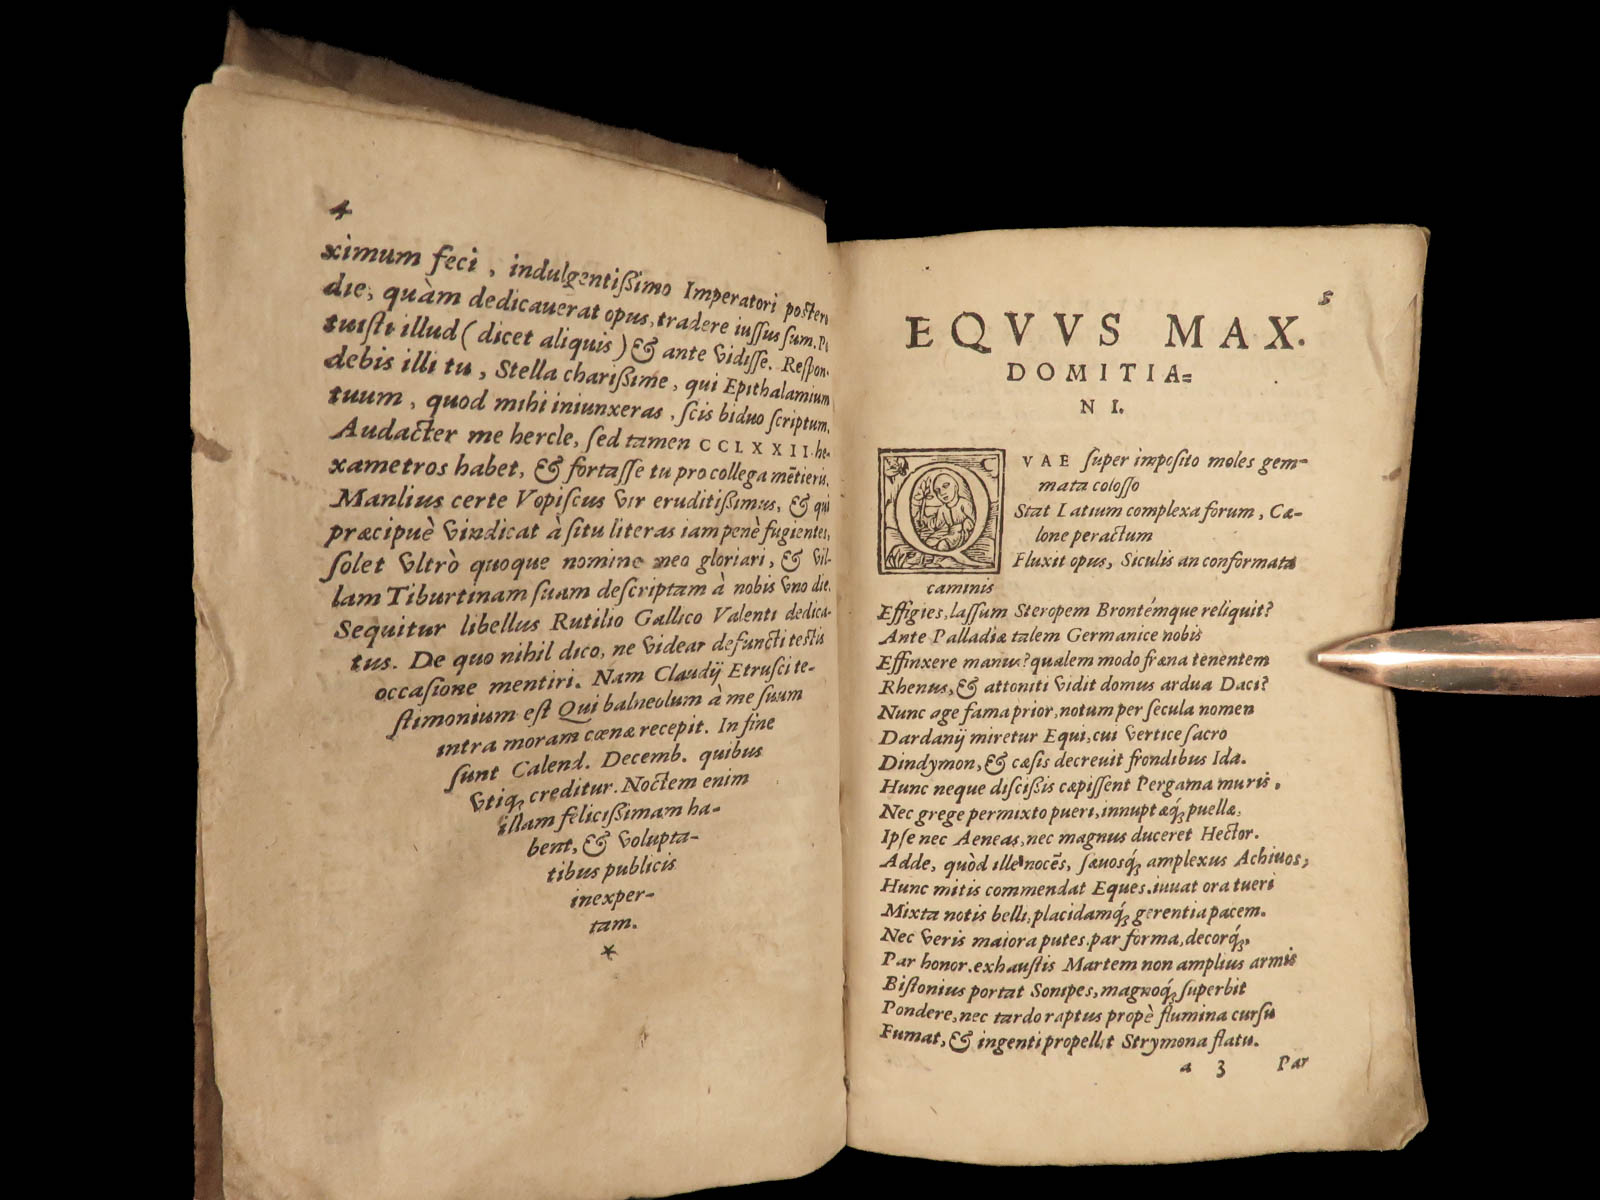 4
ximum feci, indulgentißimo Imperatori posteri
die, quàm dedicauerat opus, tradere iußus sum. Po
tuisti illud (dicet aliquis) & ante vidisse. Respon-
debis illi tu, Stella charißime, qui Epithalamium
tuum, quod mihi iniunxeras, scis biduo scriptum.
Audacter me hercle, sed tamen CCLXXII. he-
xametros habet, & fortasse tu pro collega mẽtieris.
Manlius certe Vopiscus vir eruditißimus, & qui
præcipuè vindicat à situ literas iam penè fugientes,
solet vltrò quoque nomine meo gloriari, & vil-
lam Tiburtinam suam descriptam à nobis vno die.
Sequitur libellus Rutilio Gallico Valenti dedica-
tus. De quo nihil dico, ne videar defuncti testis
occasione mentiri. Nam Claudij Etrusci te-
stimonium est Qui balneolum à me suum
intra moram cœnæ recepit. In fine
sunt Calend. Decemb. quibus
vtiq́; creditur. Noctem enim
illam felicißimam ha-
bent, & volupta-
tibus publicis
inexper-
tam.
*
5
EQVVS MAX.
DOMITIA=
NI.
QVAE super imposito moles gem-
mata colosso
Stat Latium complexa forum, Cæ-
lone peractum
Fluxit opus, Siculis an conformata
caminis
Effigies, lassum Steropem Brontémque reliquit?
Ante Palladiæ talem Germanice nobis
Effinxere manus? qualem modo fræna tenentem
Rhenus, & attoniti vidit domus ardua Daci?
Nunc age fama prior, notum per secula nomen
Dardanij miretur Equi, cui vertice sacro
Dindymon, & cæsis decreuit frondibus Ida.
Hunc neque discißis cæpissent Pergama muris,
Nec grege permixto pueri, innuptæq́; puellæ,
Ipse nec Aeneas, nec magnus duceret Hector.
Adde, quòd ille nocẽs, sæuosq́; amplexus Achiuos;
Hunc mitis commendat Eques. iuuat ora tueri
Mixta notis belli, placidamq́; gerentia pacem.
Nec veris maiora putes. par forma, decorq́;,
Par honor. exhaustis Martem non amplius armis
Bistonius portat Sonipes, magnoq́; superbit
Pondere, nec tardo raptus propè flumina cursu
Fumat, & ingenti propellit Strymona flatu.
a 3 Par